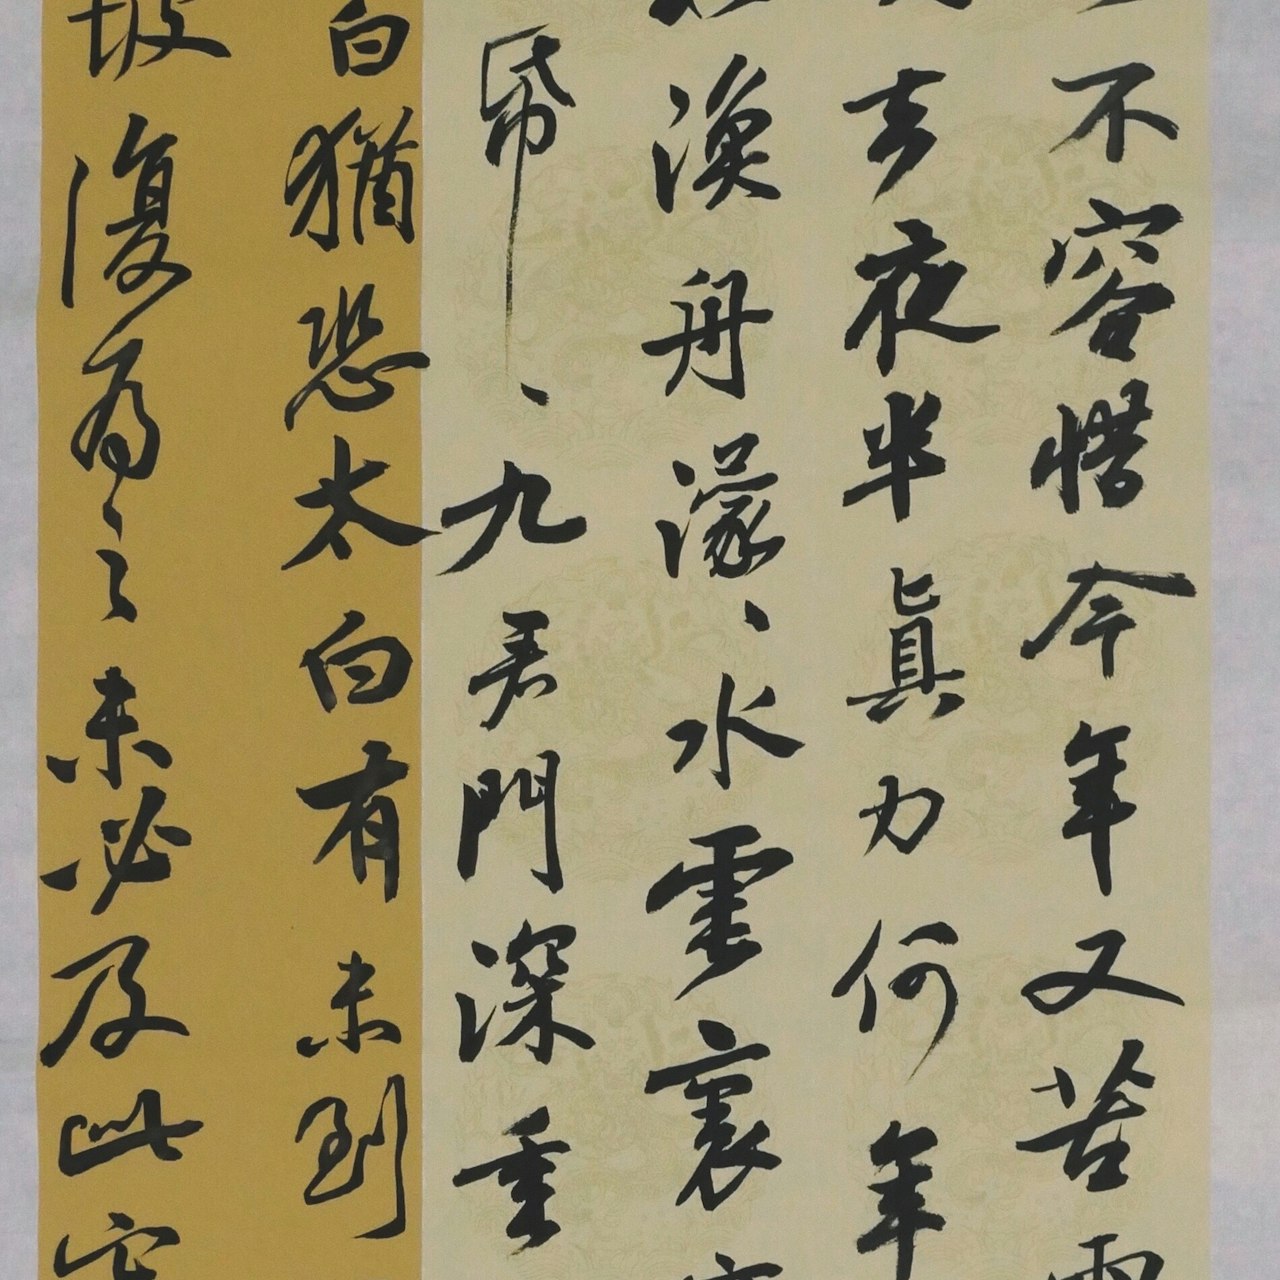 不容惜今年又苦雨
去夜半眞力何年
漁舟濛、水雲裏
帋、九君門深重
白猶恐太白有未到
坡復為之未必及此它